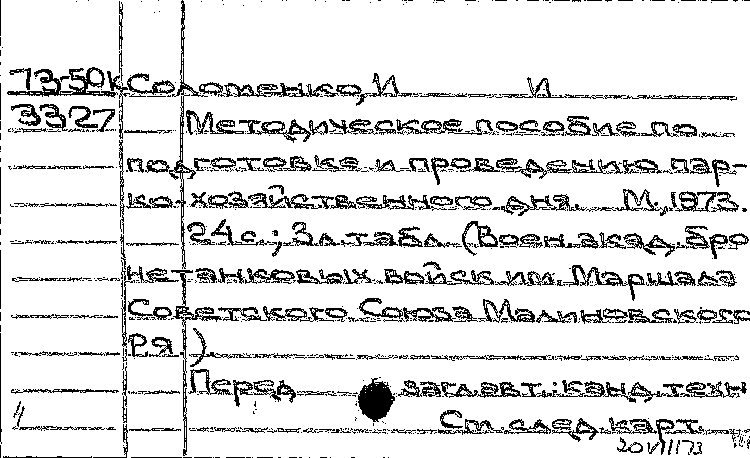 73-50к Соломенко, И И
3327 Методическое пособие по
подготовке и проведению пар-
ко-хозяйственного дня. М., 1973.
24 с.; 3 л. табл. (Воен. акад. бро
нетанковых войск им. Маршала
Советского Союза Малиновского
Р.Я.).
Перед загл. авт.: канд. техн
См. след. карт.
20 VIII 73